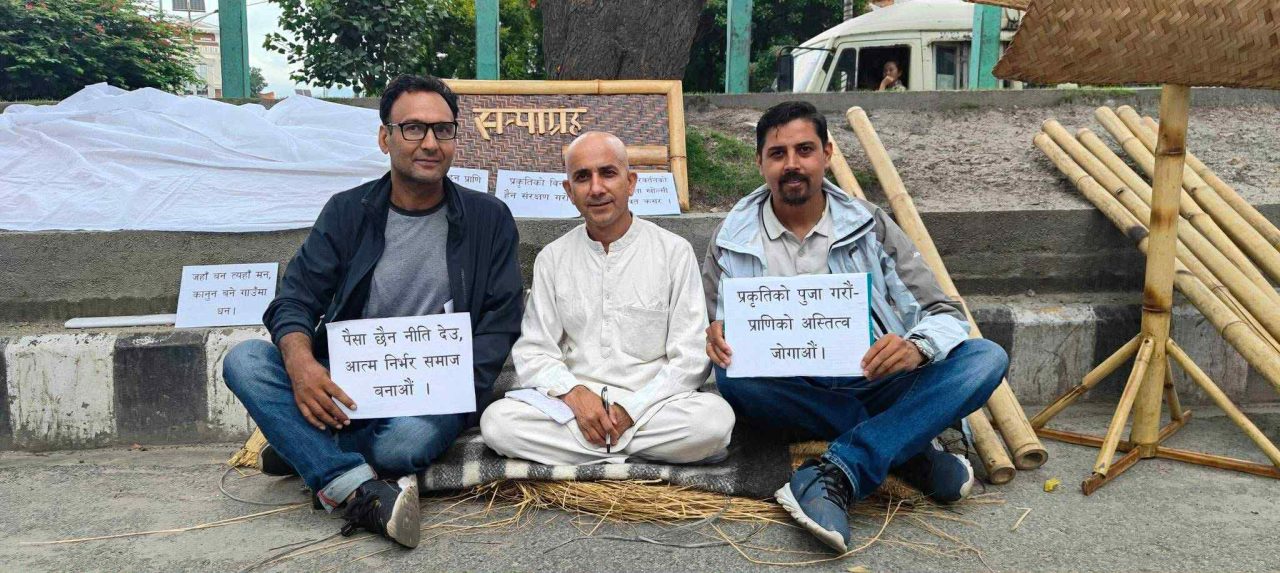 सत्याग्रह
प्राणि
प्रकृतिको
हैन संरक्षण
खोल्सी
कसर ।
जहाँ बन त्यहाँ मन,
कानुन बने गाउँमा
धन।
पैसा छैन नीति देउ,
आत्म निर्भर समाज
बनाऔं ।
प्रकृतिको पुजा गरौं-
प्राणिको अस्तित्व
जोगाऔं।